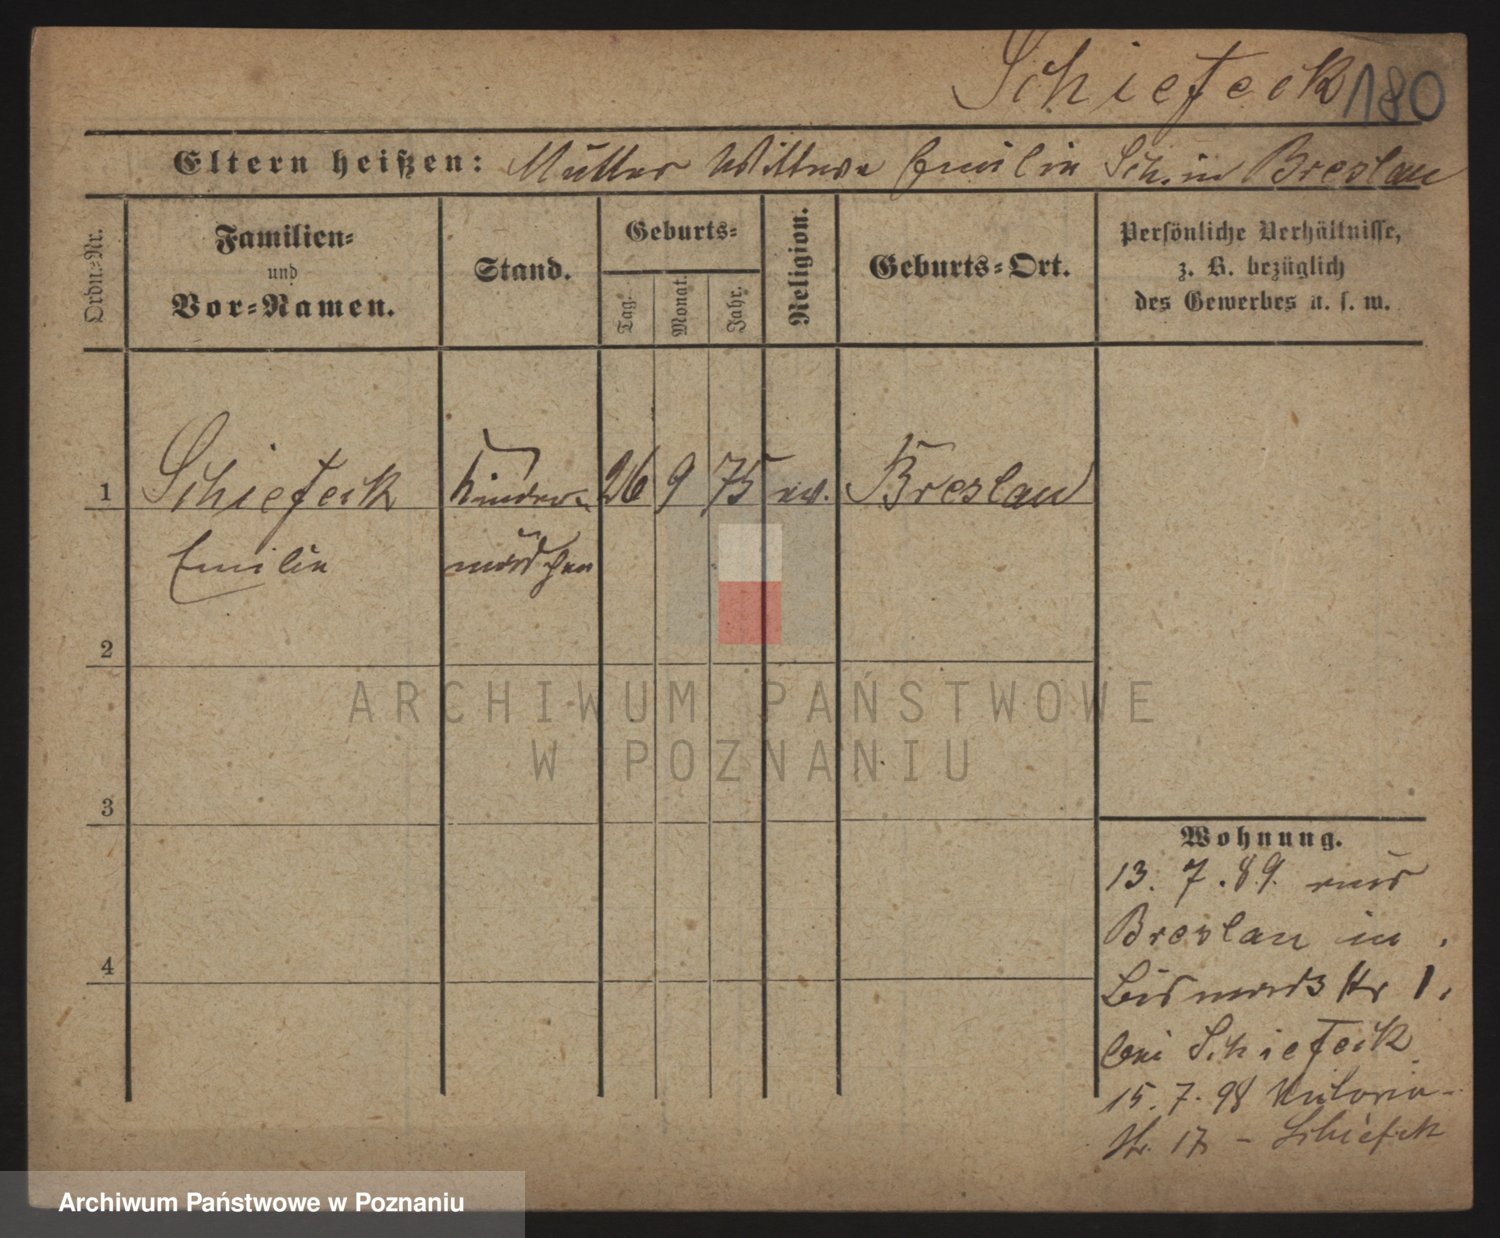 Schiefeck 180
Eltern heißen: Mutter Wittwe Emilie Sch. in Breslau
Ordn.-Nr.
Familien-
und
Vor-Namen.
Stand.
Geburts-
Tag.
Monat.
Jahr.
Religion.
Geburts-Ort.
Persönliche Verhältnisse,
z. B. bezüglich
des Gewerbes u. s. w.
1 Schiefeck Kinder- 26 9 75 ev. Breslau
Emilie mädchen
2
3
4
Wohnung.
13. 7. 89. aus
Breslau in
Bismarckstr 1.
bei Schiefeck
15. 7. 98 Victoria-
str. 17 - Schiefeck
ARCHIWUM PAŃSTWOWE
W POZNANIU
Archiwum Państwowe w Poznaniu